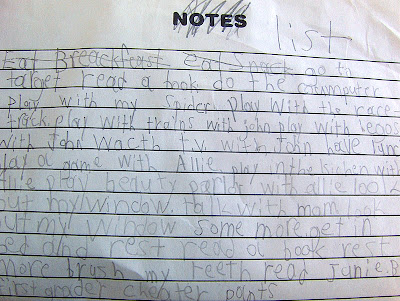 NOTES list
Eat Breackfast eat snack go to
target read a book. do the comnputer
play with my spider play with the race
track. play with trains with john play with legos
with John wacth t.v. with John have lunc
play a game with Allie. play in the kitchen with
allie play beauty parlor with allie look
out my window. talk with mom look
out my window some more get in
bed and rest read a book rest
more brush my teeth read Janie.B
first grader cheater pants